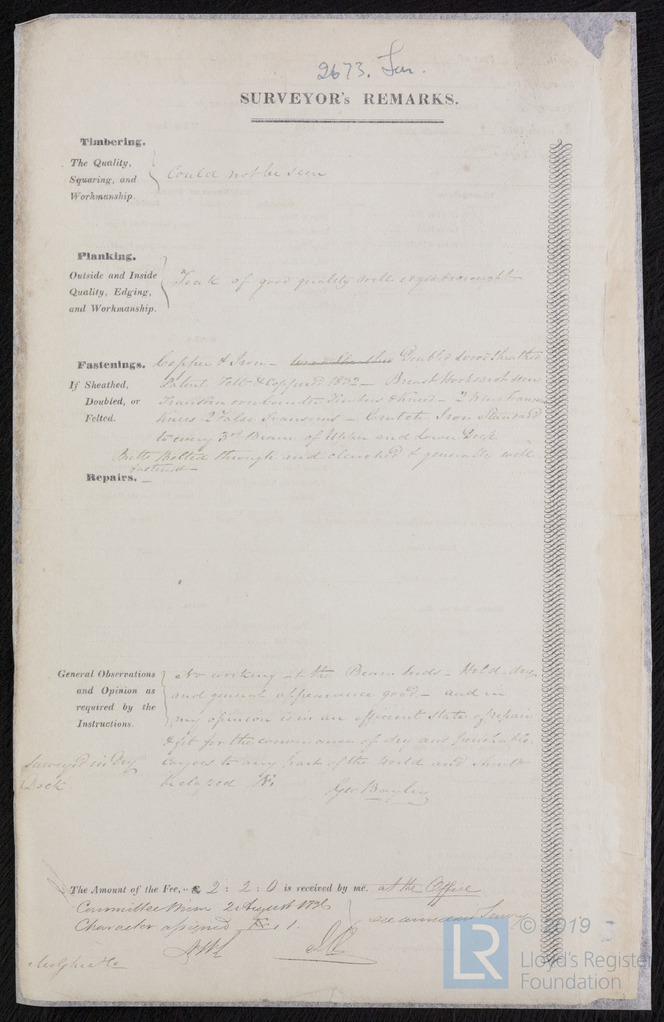 2673.
SURVEYOR's REMARKS.
Timbering.
The Quality,
Squaring, and
Workmanship.
Could not be seen
Planking.
Outside and Inside
Quality, Edging,
and Workmanship.
Teak of good quality well edged & wrought
Fastenings. Copper & Iron - Doubled wood sheathed
If Sheathed,
Doubled, or
Felted.
Patent Felt & Coppered 1832 - Breast Hooks not seen
Transom over Timbers & Kneed - 2 Transom
Knees 2 False Transoms - Iron Standard
to every 3rd Beam of Upper and Lower Deck
Butts Bolted through and clenched & generally well
fastened -
Repairs. -
General Observations
and Opinion as
required by the
Instructions.
No working at the Beam Ends - Hold dry
and general appearance good - and in
my opinion is in an efficient State of repair
& fit for the conveyance of dry and perishable
Cargoes to any part of the World and should
be classed
Surveyed in Dry
Dock
Geo Bayley
The Amount of the Fee,-£ 2 : 2 : 0 is received by me. at the Office
Committee 2 August 1836
Character assigned
see annexed Survey
© 2019
LR
Lloyd's Register
Foundation